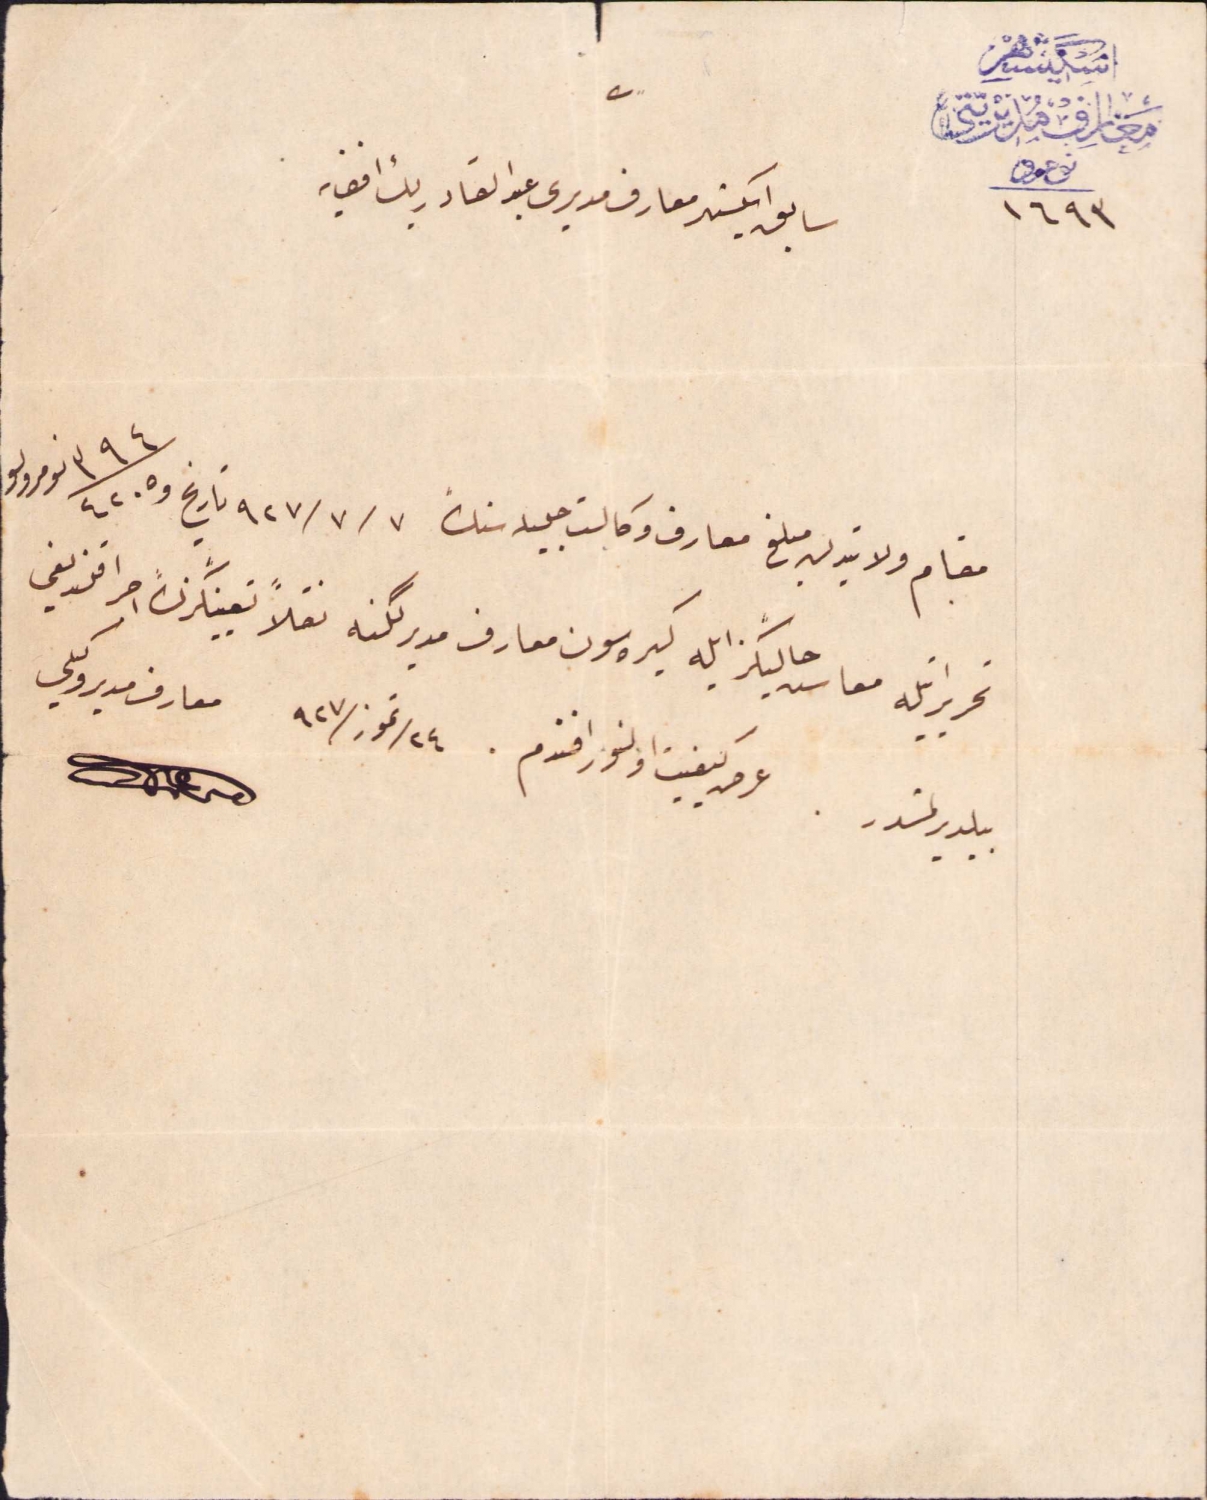 اسكیشهر
معارف مدیریتی
نومرو
١٦٩٣
سابق اسكیشهر معارف مدیری عبدالقادر بك افندی یه
مقام ولایتدن مبلغ معارف وكالت جلیله سنك ٧/٧/٩٢٧ تاریخ و ٣٩٤/٤٢٠٥ نومرولو
تحریراتیله معاش حالیكز ایله كیره سون معارف مدیرلگنه نقلاً تعیینكزك اجرا قلندیغی
بیلدیرلمشدر . عرض كیفیت اولنور افندم . ٢٤/تموز/٩٢٧
معارف مدیر وكیلی